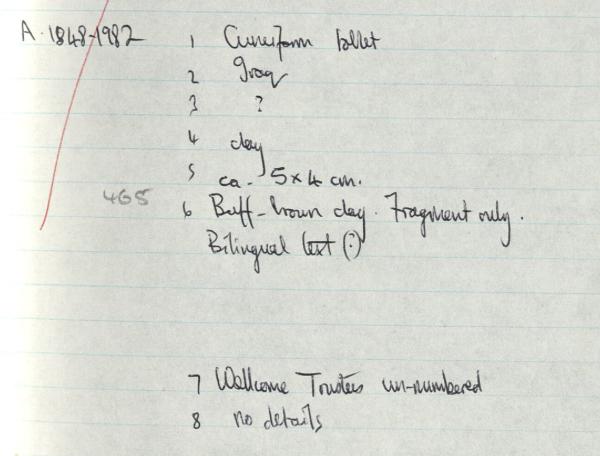 A. 1848-1982 1 Cuneiform tablet
2 Iraq
3 ?
4 clay
5 ca. 5 x 4 cm.
465
6 Buff-brown clay. Fragment only.
Bilingual text (?)
7 Wellcome Trustees un-numbered
8 no details